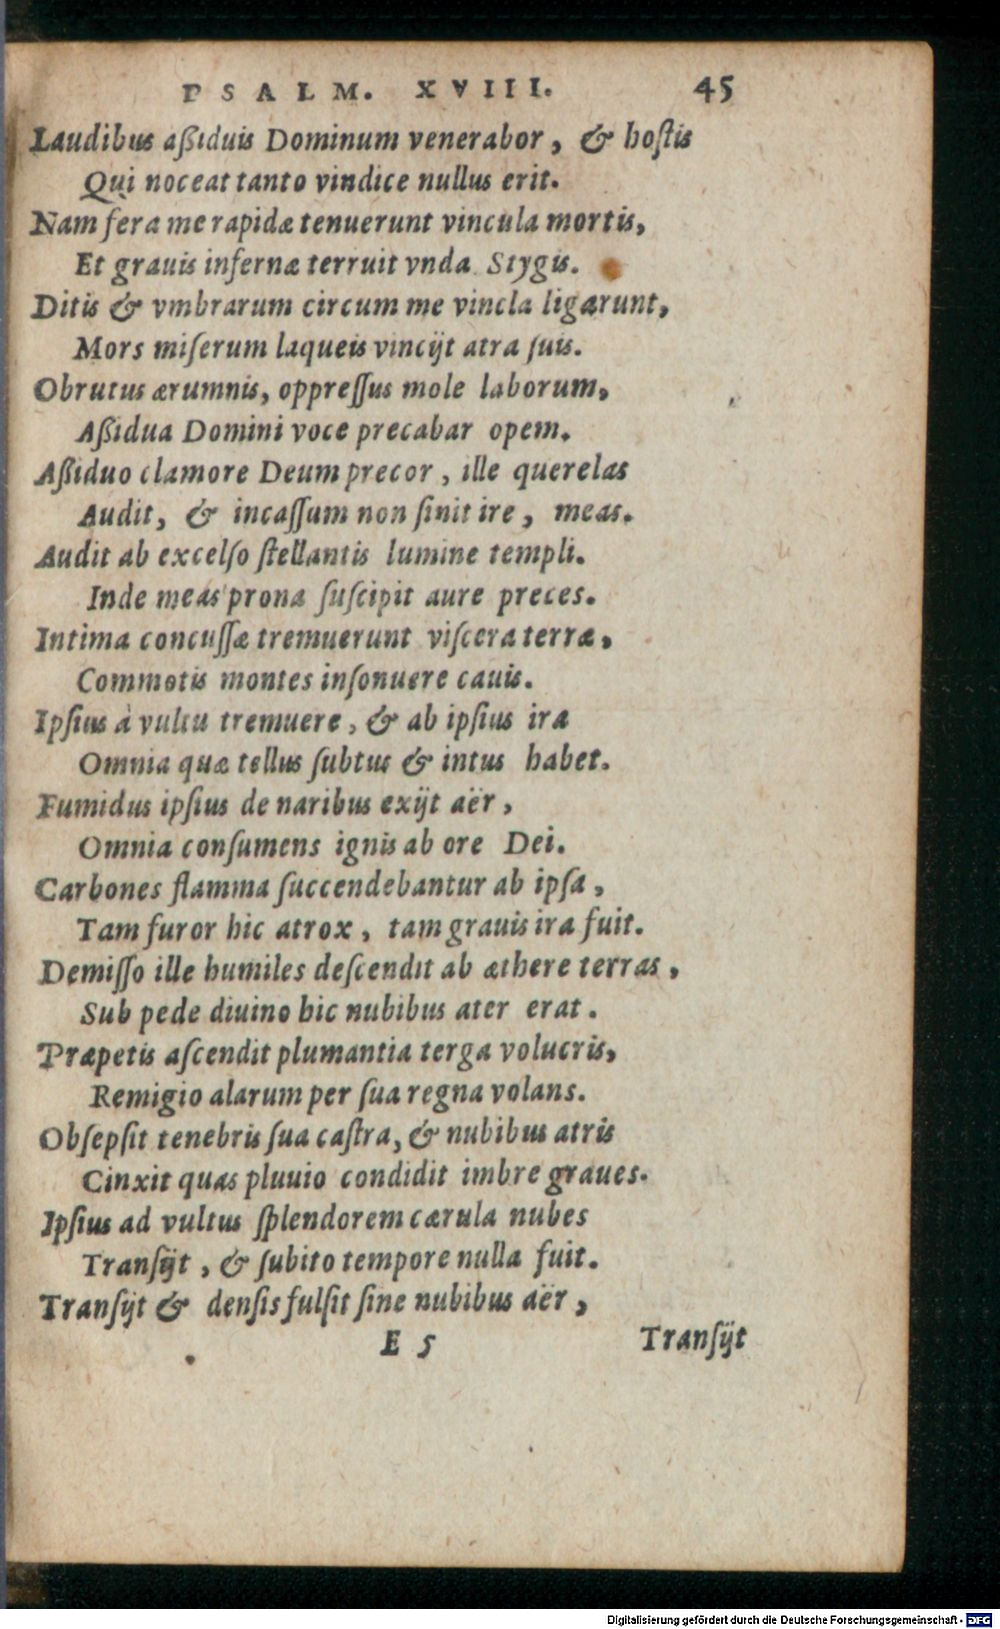 PSALM. XVIII. 45
Laudibus aßiduis Dominum venerabor, & hostis
Qui noceat tanto vindice nullus erit.
Nam fera me rapidæ tenuerunt vincula mortis,
Et grauis infernæ terruit vnda Stygis.
Ditis & vmbrarum circum me vincla ligarunt,
Mors miserum laqueis vincijt atra suis.
Obrutus ærumnis, oppressus mole laborum,
Aßidua Domini voce precabar opem.
Aßiduo clamore Deum precor, ille querelas
Audit, & incassum non sinit ire, meas.
Audit ab excelso stellantis lumine templi.
Inde meas prona suscipit aure preces.
Intima concussæ tremuerunt viscera terræ,
Commotis montes insonuere cauis.
Ipsius à vultu tremuere, & ab ipsius ira
Omnia quæ tellus subtus & intus habet.
Fumidus ipsius de naribus exijt aër,
Omnia consumens ignis ab ore Dei.
Carbones flamma succendebantur ab ipsa,
Tam furor hic atrox, tam grauis ira fuit.
Demisso ille humiles descendit ab æthere terras,
Sub pede diuino hic nubibus ater erat.
Præpetis ascendit plumantia terga volucris,
Remigio alarum per sua regna volans.
Obsepsit tenebris sua castra, & nubibus atris
Cinxit quas pluuio condidit imbre graues.
Ipsius ad vultus splendorem cærula nubes
Transijt, & subito tempore nulla fuit.
Transijt & densis fulsit sine nubibus aër,
E 5 Transijt
Digitalisierung gefördert durch die Deutsche Forschungsgemeinschaft - DFG